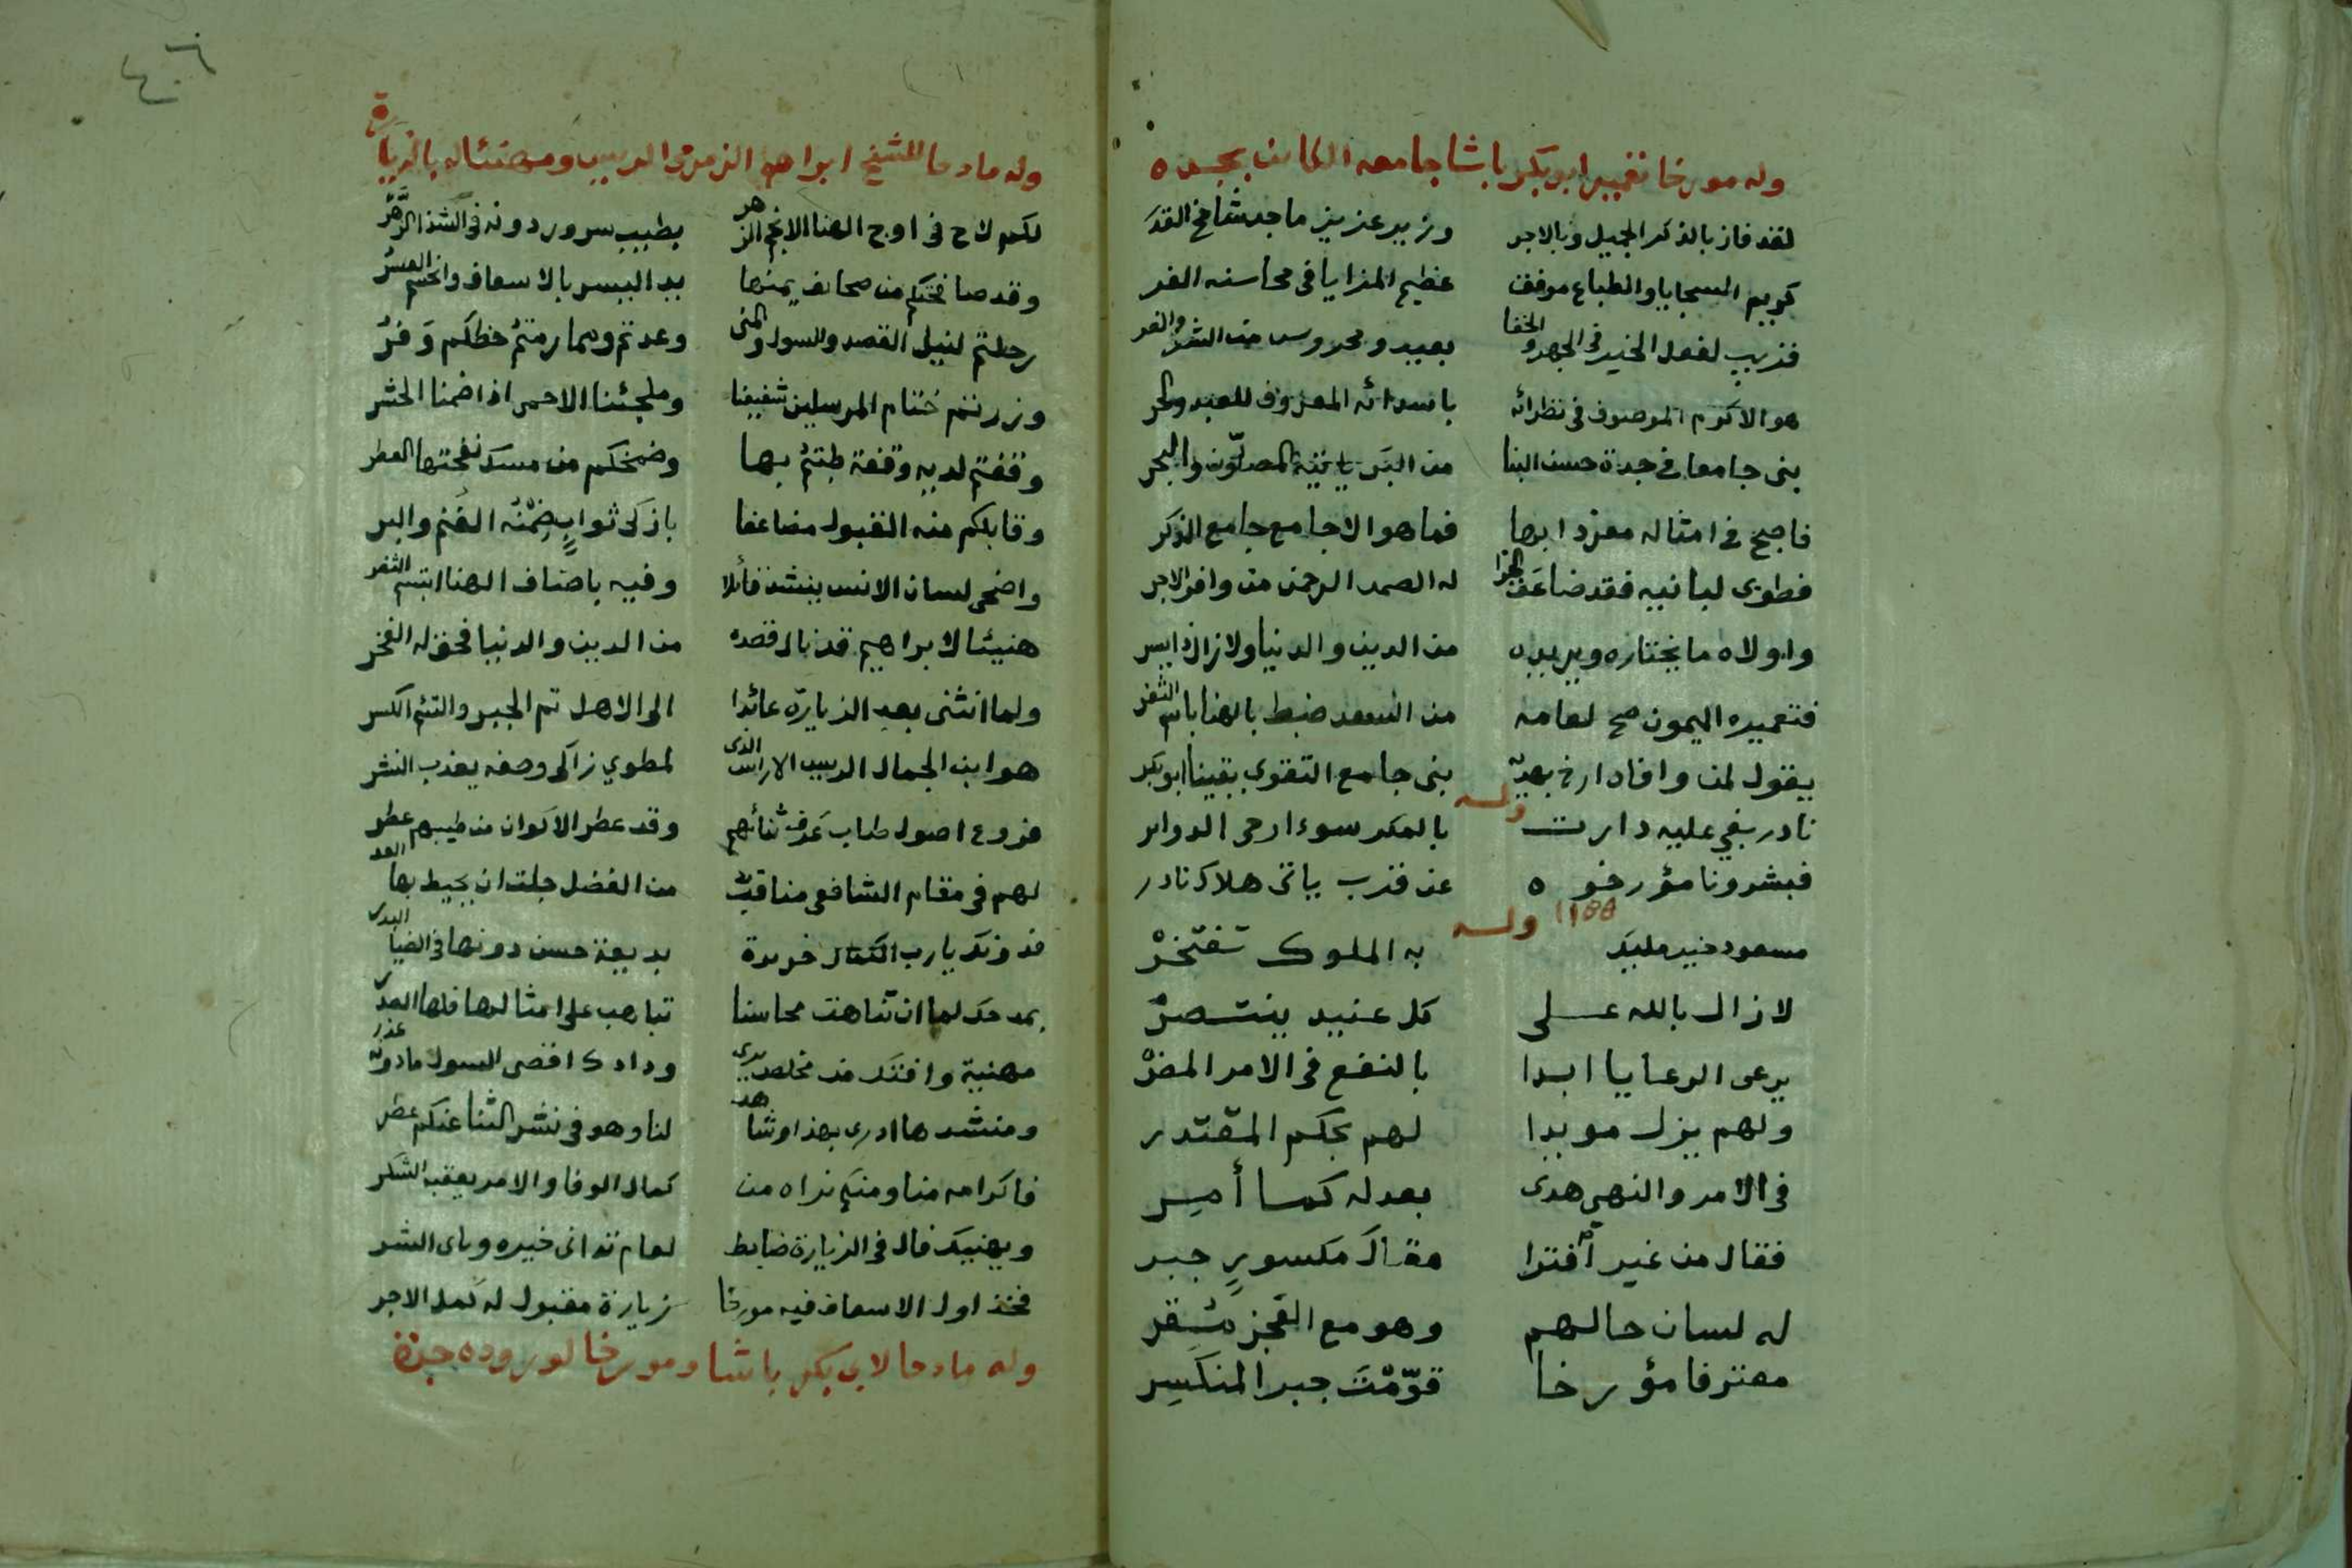 وله مورخا تعمير ابو بكر باشا جامعه الكائن بجده
لقد فاز بالذكر الجميل وبالاجر وزير عزيز ماجد شامخ القدَ
كريم السجايا والطباع موفق عظيم المزايا في محاسنه الغر
قريب لفعل الخير في الجهر والخفا بعيد ومحروس من الشر والغدر
هو الاكرم الموصوف في نظرائه باسدائه المعروف للعبد والحر
بنى جامعا في جدة حسن البنا من البَر ياتيه المصلّون والبحر
فاصبح في امثاله مفردا بها فما هو الا جامع جامع الذكر
فطوبى لبانيه فقد ضاعَف الجزا له الصمد الرحمن من وافر الاجر
واولاه ما يختاره ويريده من الدين والدنيا ولا زال ذا يسر
فتعميره الميمون صح لعامه من السعد ضبط بالهنا باسم الثغر
يقول لمن وافاه ارخ بهديه بنى جامع التقوى يقينا ابو بكر
وله
نادر بغي عليه دارت بالمكر سوء ارحى الدواير
فبشرونا مؤرخوه عن قرب ياتى هلاك نادر
١١٥٥ وله
مسعود خير مليك به الملوك تفتخرْ
لا زال بالله على كل عنيد ينتصرْ
يرعى الرعايا ابدا بالنفع في الامر المضرْ
ولهم يزل مويدا لهم بحكم المقتدر
في الامر والنهى هدى بعدله كما أمر
فقال من غير افترا مقال مكسورٍ جبر
له لسان حالهم وهو مع العجز مُقر
معترفا مؤرخا قوّمْتَ جبر المنكَسِر
٤٠٦
وله مادحا للشيخ ابراهيم الزمزمى الريس ومهنئاله بالزيارة
لكم لاح في اوج الهنا الانجم الزهر بطيب سرور دونه في الشذا الزَّهْرُ
وقد صافحتكم من صحائف يمنها يد اليسر بالاسعاف وانحسم العسرُ
رحلتم لنيل القصد والسول والمنى وعدتم ومما رمتمُ حظكم وَفرُ
وزرتم ختام المرسلين شفيعنا وملجئنا الاحمى اذا ضمنا الحشر
وقفتم لديه وقفة طبتمُ بها وضمخكم من مسك نفحتها العطر
وقابلكم منه القبول مضاعفا بازكى ثوابٍ ضِمْنُه الغُنم والبر
واضحى لسان الانس ينشد قائلا وفيه باصناف الهنا ابتسم الثغر
هنيئا لابراهيم قد نال قصده من الدين والدنيا فحق له الفخر
ولما انثنى بعد الزيارة عائدا الى الاهل تم الجبر والتئم الكسر
هو ابن الجمال الريس الاراس الذى لمطوي زاكى وصفه يعذب النشر
فروع اصول طاب عَرف ثنائهم وقد عطر الاكوان من طيبهم عطر
لهم في مقام الشافعى مناقبٌ من الفضل جلت ان يحيط بها العد
فدونك يا رب الكمال خريدة بديعة حسن دونها في الضيا البدر
بمدحك لما ان تناهت محاسنا تباهت على امثالها فلها العذر
مهنية وافتك من مخلص يرى ودادك اقصى السول ما دونه عذر
ومنشدها ادرى بهذا وشاهد لنا وهو في نشر الثنا عنكم عطر
فاكرامه منا ومنكم نراه من كمال الوفا والامر يعقبه الشكر
ويهنيك فال في الزيارة ضابط لعام تدانى خيره وناى الشر
فخذ اول الاسعاف فيه مورخا زيارة مقبول له كمل الاجر
وله مادحا لابى بكر باشا ومورخا لوروده جدة